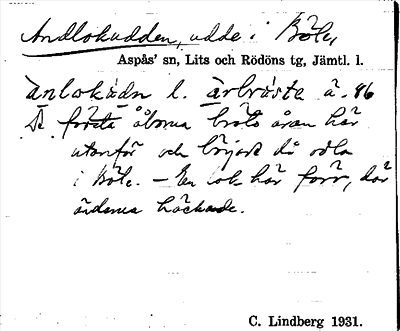 Andlokudden, udde i Böle,
Aspås' sn, Lits och Rödöns tg, Jämtl. l.
anlokùdn l. årbråsta å. 46
De första åborna bröto åran här
utanför och började då odla
i Böle. – En lok här förr, där
änderna häckade.
C. Lindberg 1931.